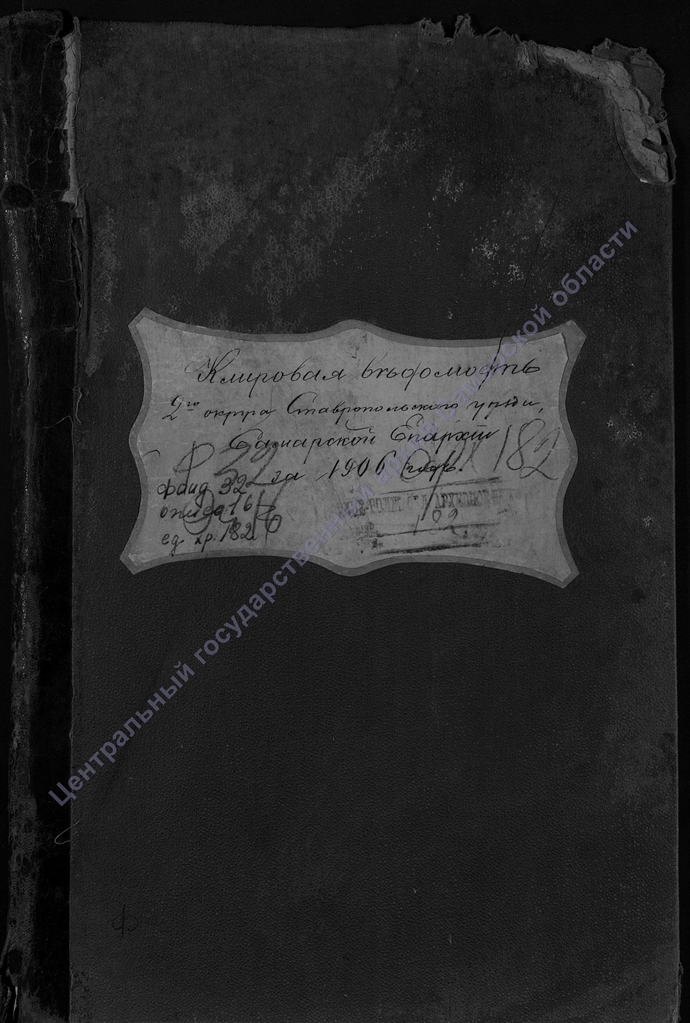 Клировая вѣдомость
2го округа Ставропольскаго уѣзда,
Самарской Епархіи
за 1906 годъ.
Ф 32
182
фонд 32
опись 16
ед хр. 182
Центральный государственный архив Самарской области